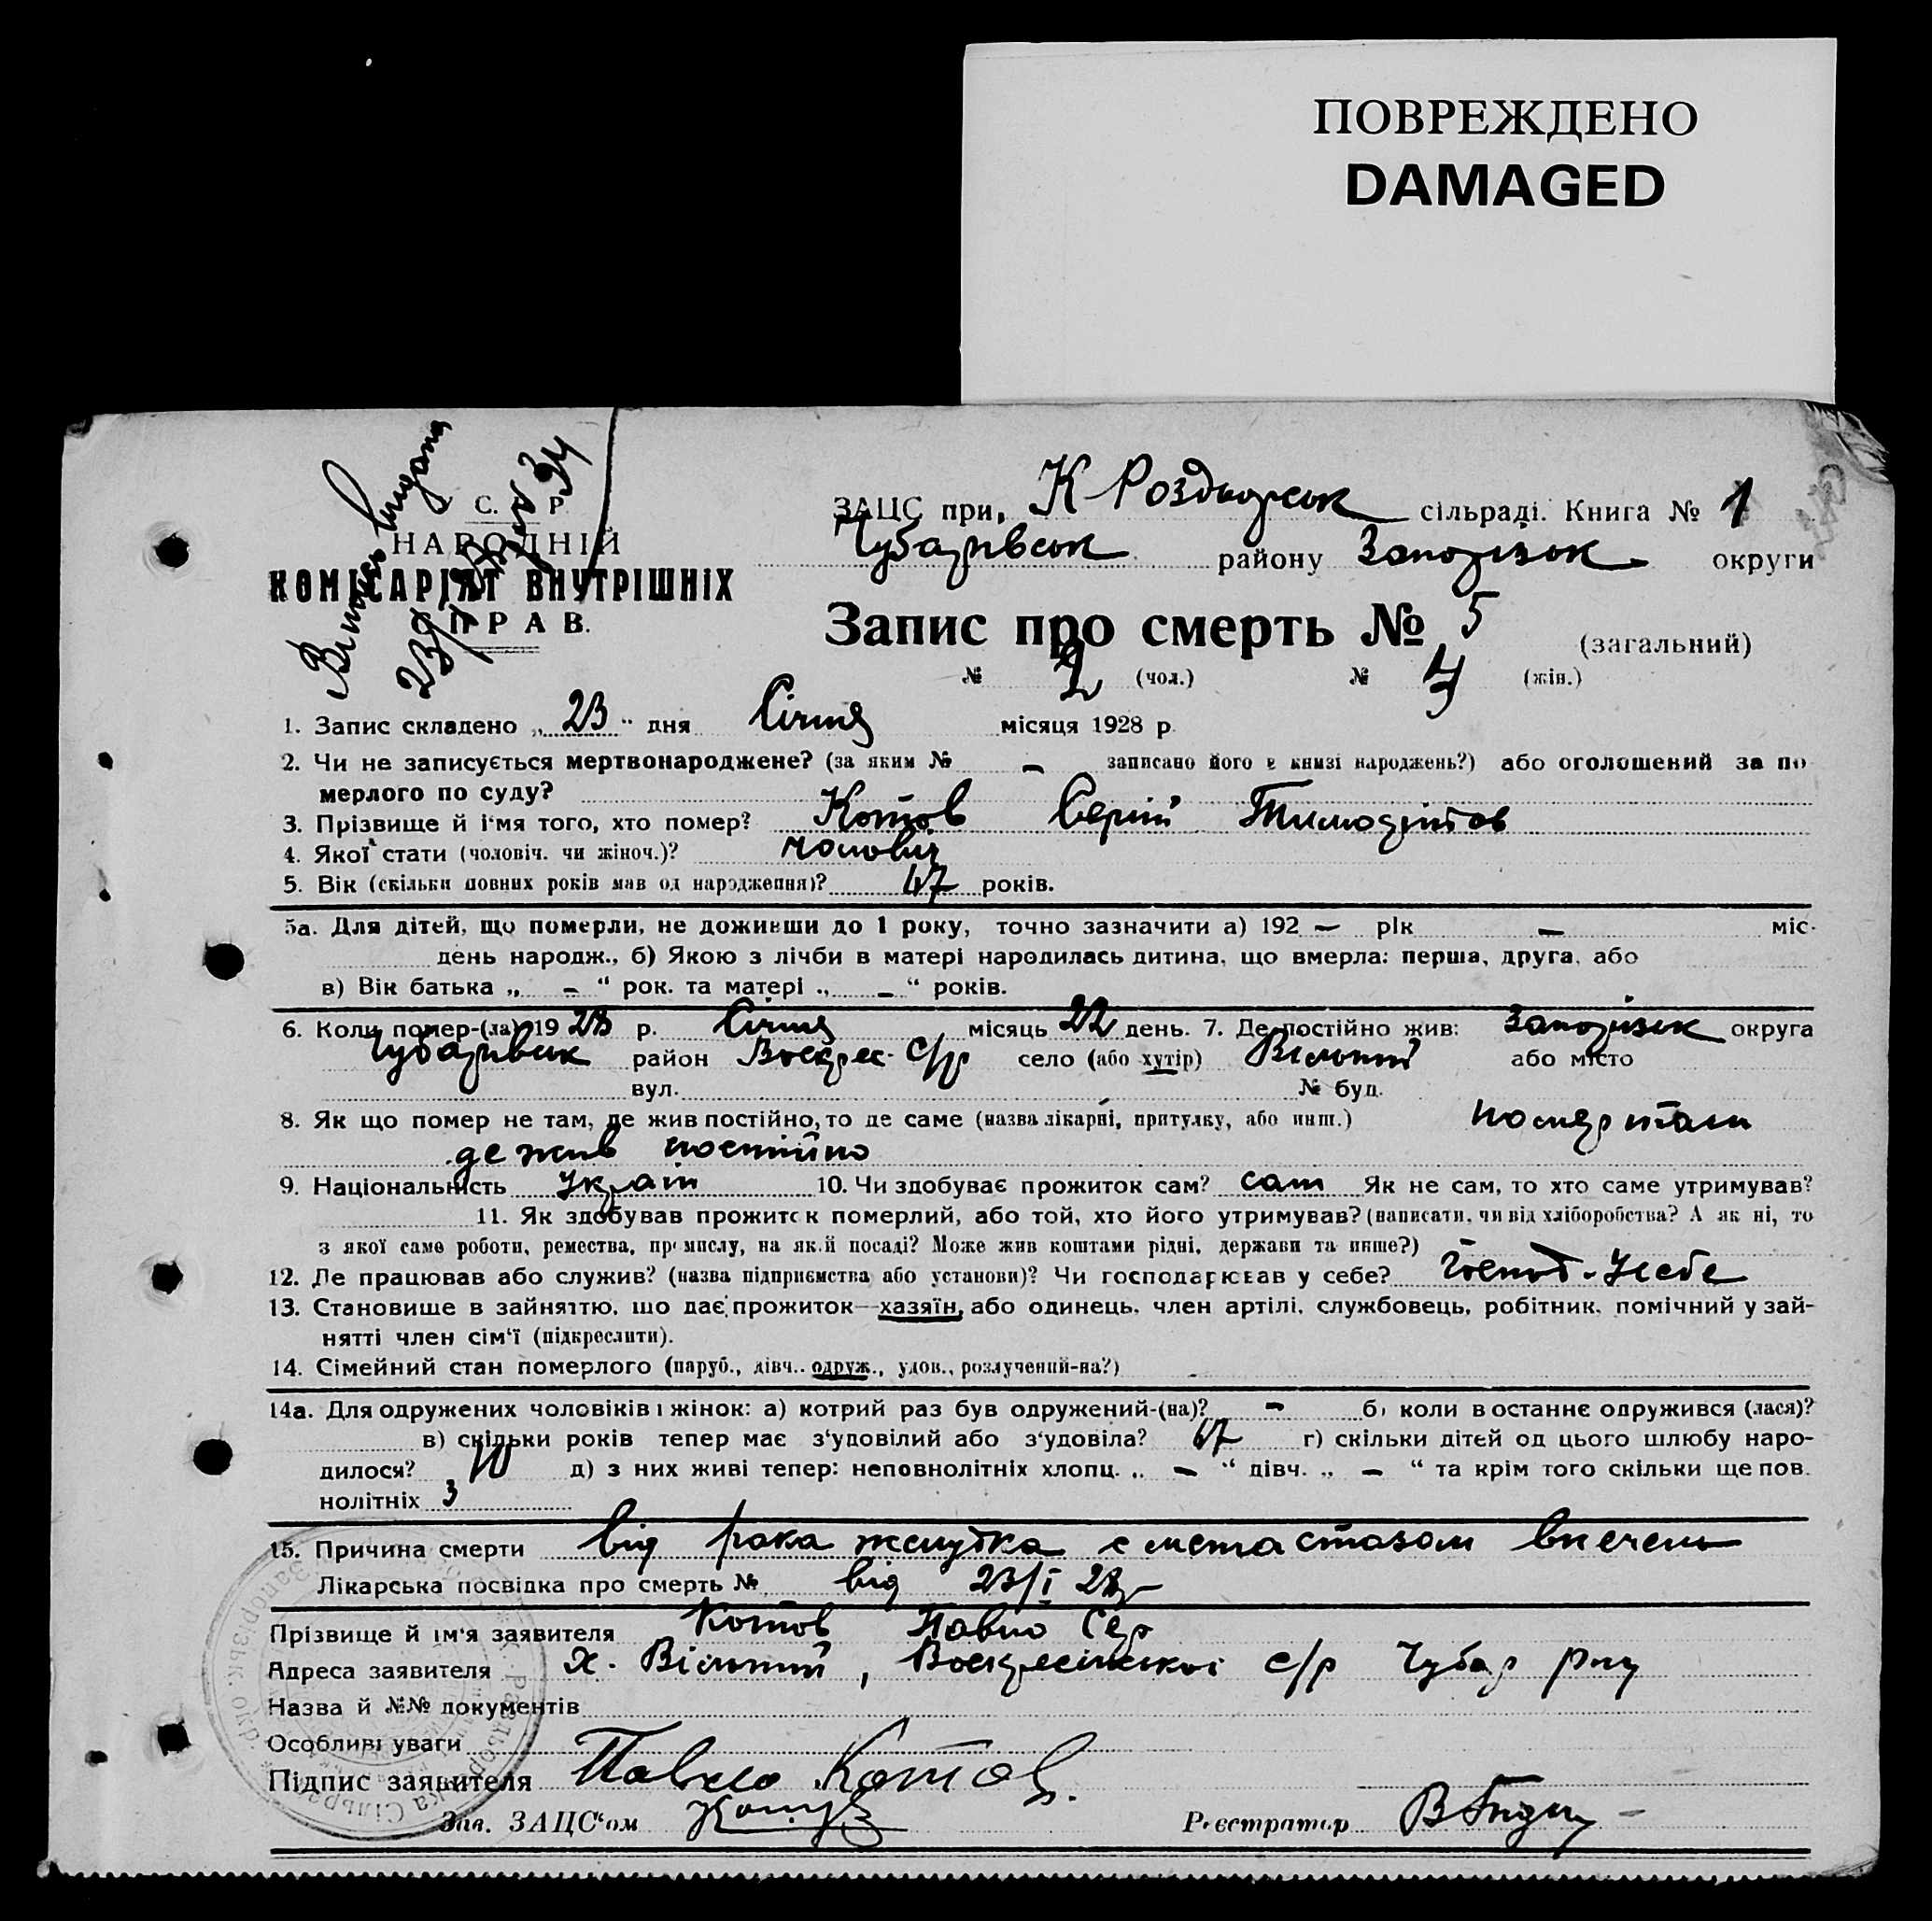 ПОВРЕЖДЕНО
DAMAGED
ЗАЦС при К Роздорськ сільраді. Книга № 1
С. Р.
НАРОДНІЙ
Чубарівськ району Запоріжськ округи
КОМІСАРІЯТ ВНУТРІШНІХ
СПРАВ.
23/
Запис про смерть № 5 (загальний)
№ 2 (чол.) № (жін.)
1. Запис складено „ 23 " дня Січня місяця 1928 р.
2. Чи не записується мертвонароджене? (за яким № – записано його в книзі народжень?) або оголошений за по
мерлого по суду?
3. Прізвище й ім'я того, хто помер? Котов Сергій
4. Якої стати (чоловіч. чи жіноч.)? чоловіч
5. Вік (скільки повних років мав од народження)? 47 років.
5а. Для дітей, що померли, не доживши до 1 року, точно зазначити а) 192 – рік – міс.
день народж., б) Якою з лічби в матері народилась дитина, що вмерла: перша, друга, або
в) Вік батька „ – " рок. та матері „ – " років.
6. Коли помер-(ла) 19 28 р. Січня місяць 22 день. 7. Де постійно жив: Запоріжськ округа
Чубарівськ район Воскрес. с/р село (або хутір) Вільний або місто
вул. № буд.
8. Як що помер не там, де жив постійно, то де саме (назва лікарні, притулку, або инш.) помер там
де жив постійно
9. Національність Україн 10. Чи здобуває прожиток сам? сам Як не сам, то хто саме утримував?
11. Як здобував прожиток померлий, або той, хто його утримував? (написати, чи від хліборобства? А як ні, то
з якої саме роботи, ремества, промислу, на якій посаді? Може жив коштами рідні, держави та инше?)
12. Де працював або служив? (назва підприємства або установи)? Чи господарював у себе? Господ. у себе
13. Становище в зайняттю, що дає прожиток—хазяїн, або одинець, член артілі, службовець, робітник, помічний у зай-
нятті член сім'ї (підкреслити).
14. Сімейний стан померлого (паруб., дівч., одруж., удов., розлучений-на?)
14а. Для одружених чоловіків і жінок: а) котрий раз був одружений-(на)? – б) коли востаннє одружився (лася)?
в) скільки років тепер має з'удовілий або з'удовіла? 47 г) скільки дітей од цього шлюбу наро-
дилося? 10 д) з них живі тепер: неповнолітніх хлопц. „ – " дівч. „ – " та крім того скільки ще пов.
нолітніх 3
15. Причина смерти від рака желудка с метастазом в печень
Лікарська посвідка про смерть № від 23/I 28р
Прізвище й ім'я заявителя Котов Павло Сер
Адреса заявителя х. Вільний, Воскресінської с/р Чубар р-ну
Назва й №№ документів
Особливі уваги
Підпис заявителя Павло Котов.
Зав. ЗАЦС'ом
Реєстратор